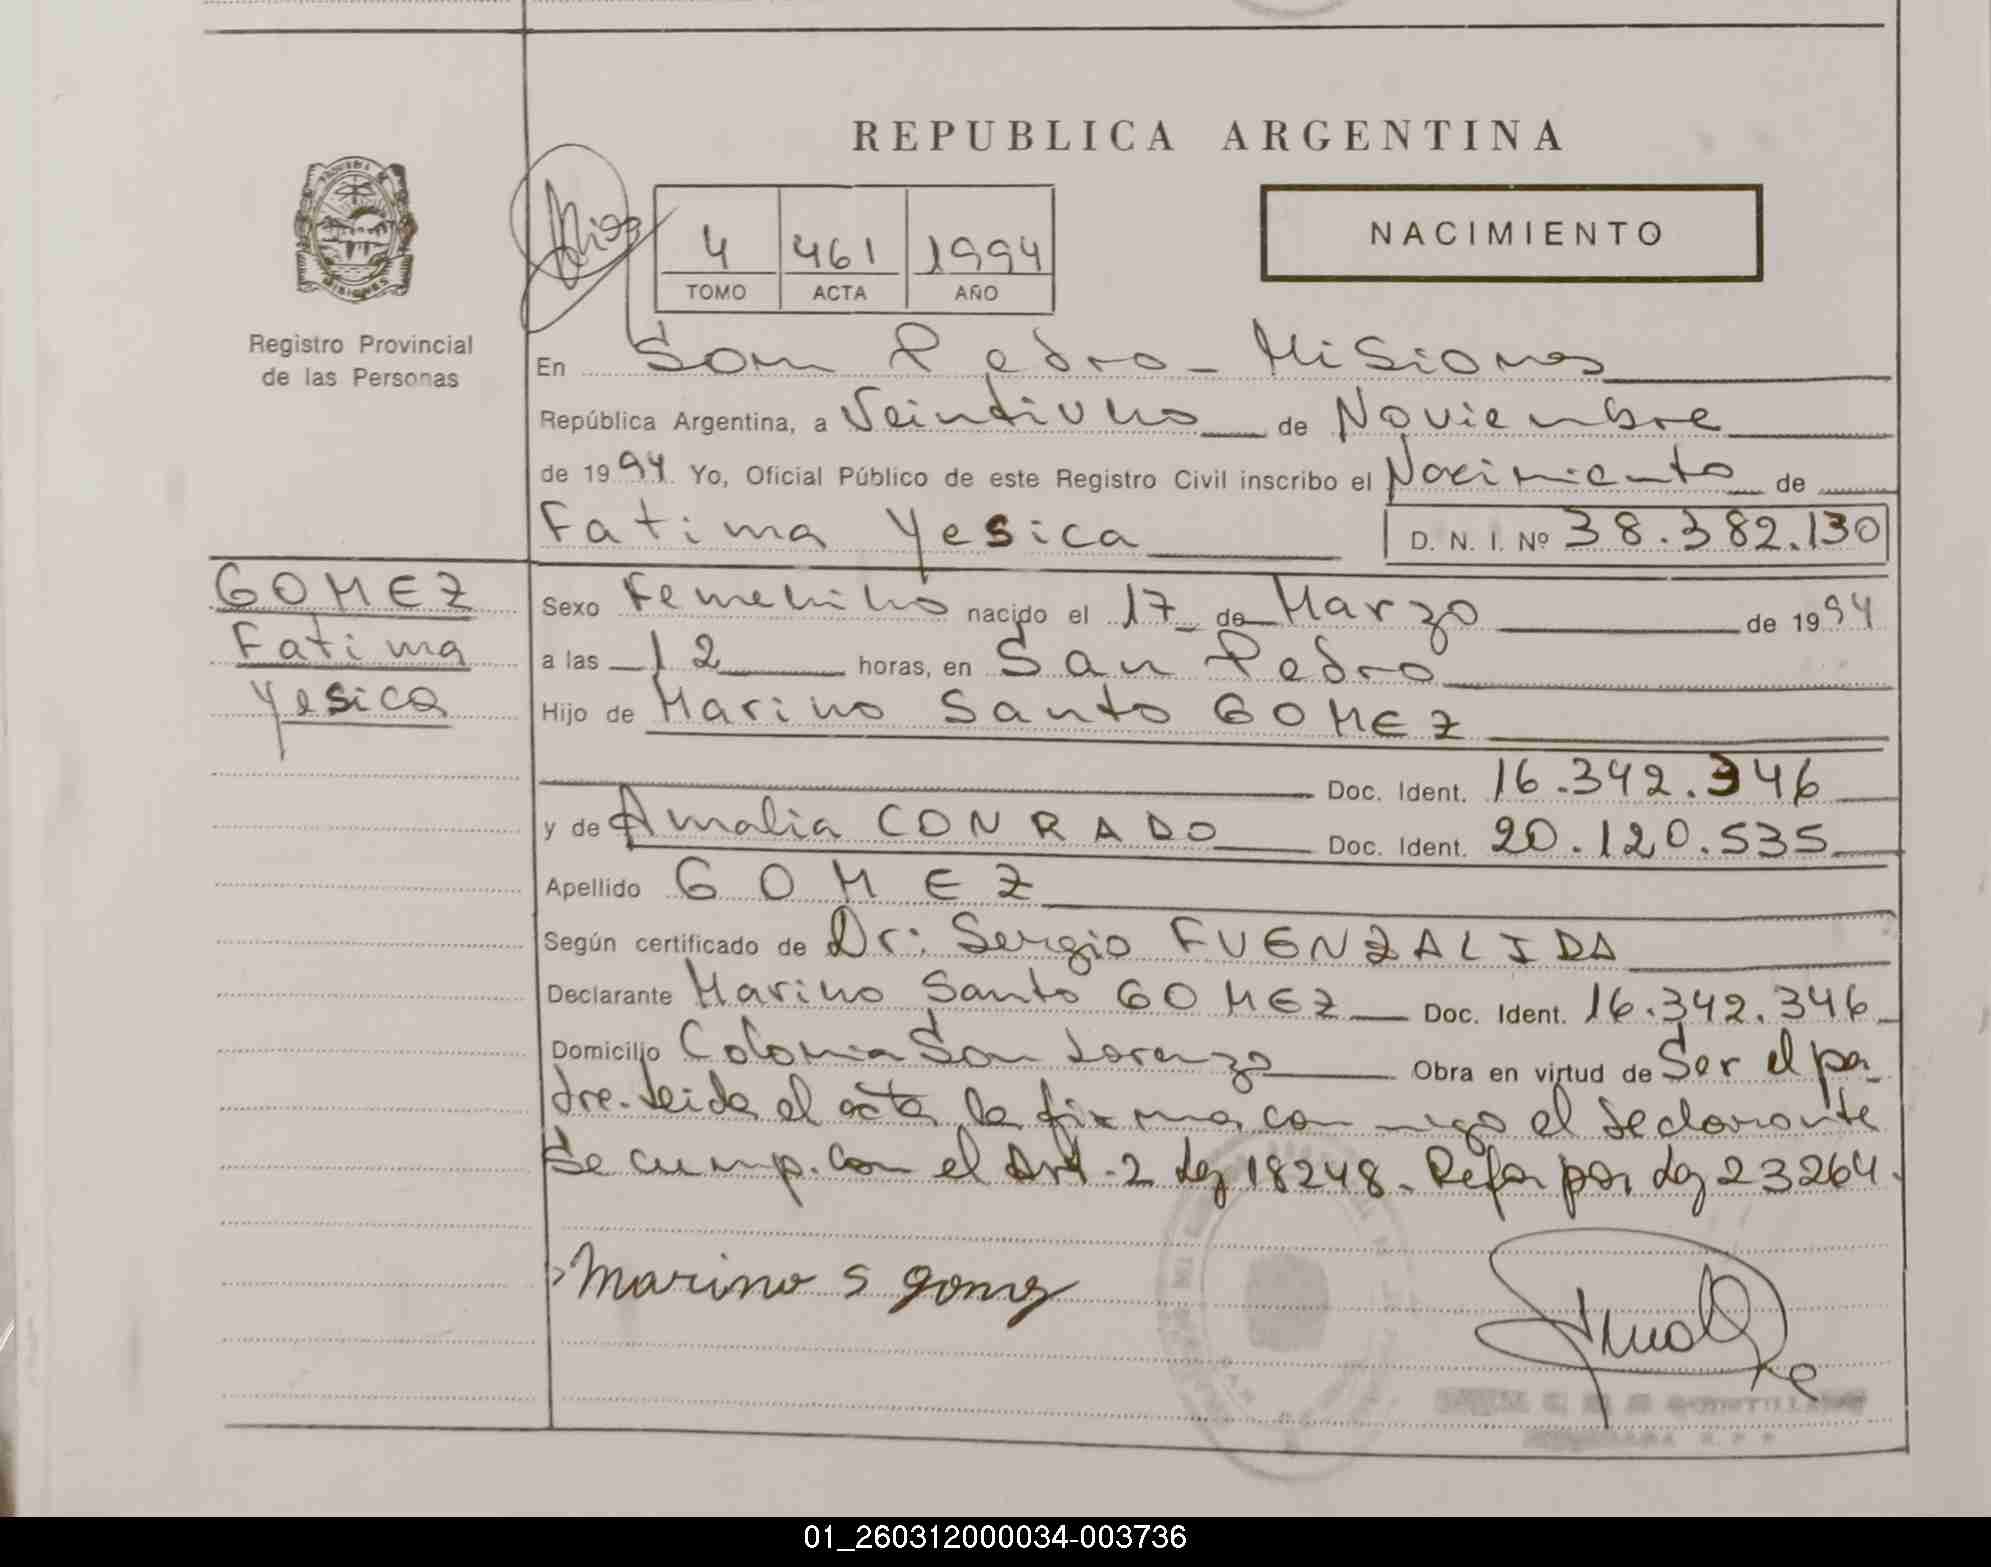 REPUBLICA ARGENTINA
NACIMIENTO
4 461 1994
TOMO ACTA AÑO
Registro Provincial
de las Personas
En San Pedro - Misiones
República Argentina, a Veintiuno de Noviembre
de 1994. Yo, Oficial Público de este Registro Civil inscribo el Nacimiento de
Fatima Yesica D. N. I. Nº 38.382.130
GOMEZ
Fatima
Yesica
Sexo Femenino nacido el 17 de Marzo de 1994
a las 12 horas, en San Pedro
Hijo de Marino Santo GOMEZ
Doc. Ident. 16.342.346
y de Amalia CONRADO Doc. Ident. 20.120.535
Apellido GOMEZ
Según certificado de Dr: Sergio FUENZALIDA
Declarante Marino Santo GOMEZ Doc. Ident. 16.342.346
Domicilio Colonia San Lorenzo Obra en virtud de Ser el pa-
dre. Leida el acta la firma conmigo el declarante
Se cump. con el Art. 2 Ley 18248. Refor por Ley 23264.
Marino S gomez
01_260312000034-003736